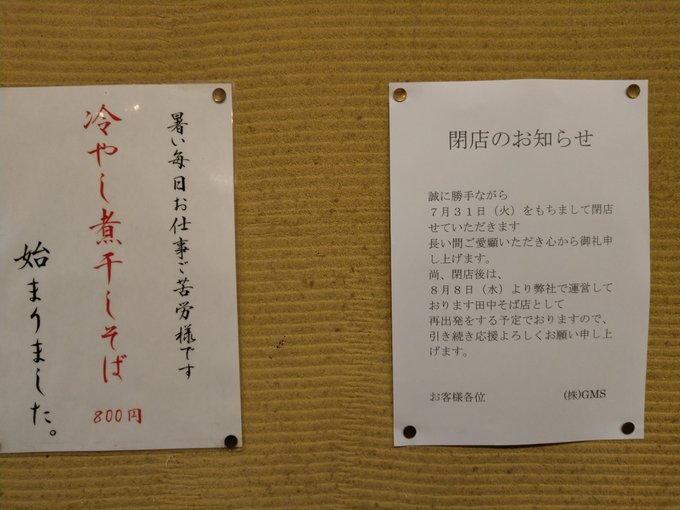 暑い毎日お仕事ご苦労様です
冷やし煮干しそば
800円
始まりました。
閉店のお知らせ
誠に勝手ながら
7月31日（火）をもちまして閉店
せていただきます
長い間ご愛顧いただき心から御礼申
し上げます。
尚、閉店後は、
8月8日（水）より弊社で運営して
おります田中そば店として
再出発をする予定でおりますので、
引き続き応援よろしくお願い申し上
げます。
お客様各位　(株)GMS